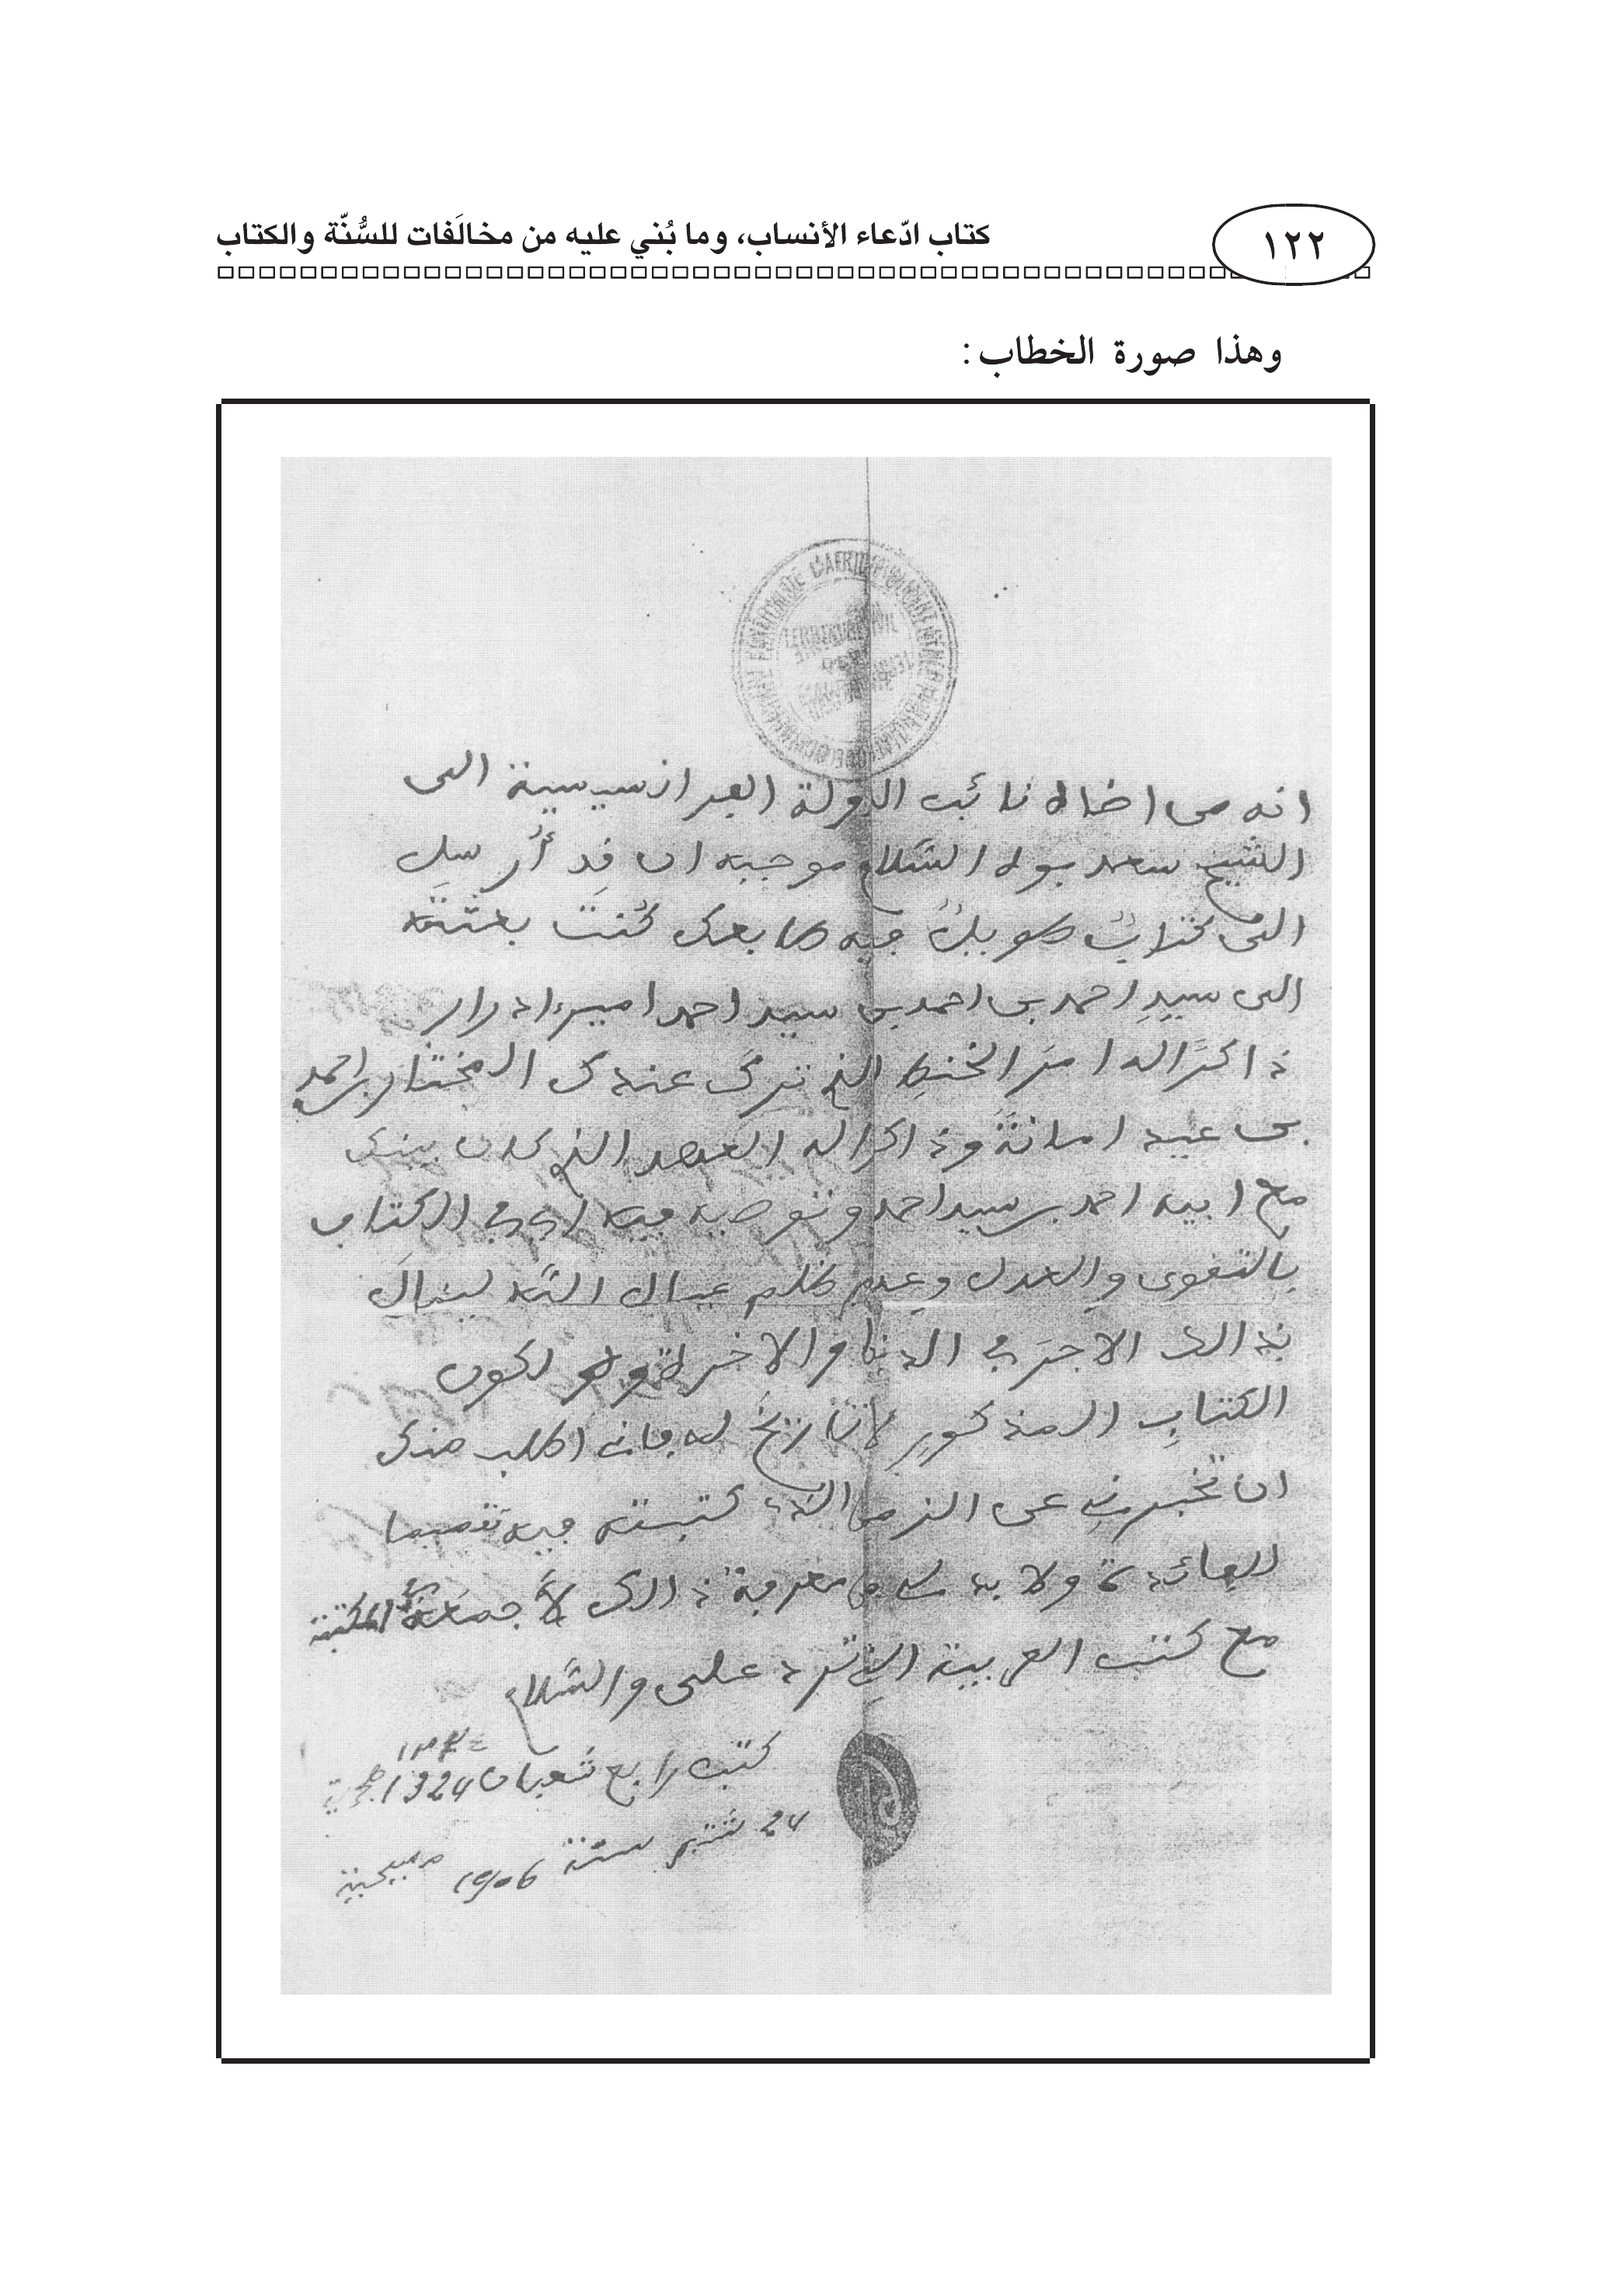 ١٢٢
كتاب ادّعاء الأنساب، وما بُني عليه من مخالَفات للسُّنّة والكتاب
وهذا صورة الخطاب:
انه من نائب الدولة الفرانسيسية الى
الشيخ سعد بوه السّلام موجبه ان قد أُرسل
الى كتابٌ طويلٌ فيه كنت بعثته
الى سيدِ احمد بن احمد بن سيد احمد امير ادرار
ذاكرًا له امرَ الذي تركَ عندك المختار بن احمد
بن عيد امانةً وذاكرا له العهد الذي كان بينك
مع ابيه احمد بن سيد احمد وتوصيه فيه اي في الكتاب
بالتقوى والعدل وعدم ظلم عيال اللّه لينالَ
بذالك الاجرَ في الدنيا والاخرة ولكون
الكتابِ المذكورِ لا تاريخَ له فاني اطلب منك
ان تخبرني عن الزمن الذي كتبته فيه تتميما
للفائدة ولا بد لي من معرفة ذالك
مع كتب العربية التي ترد على والسّلام
كتب رابع شعبان 1324 هجرية
24 شتنبر سنة 1906 مسيحية